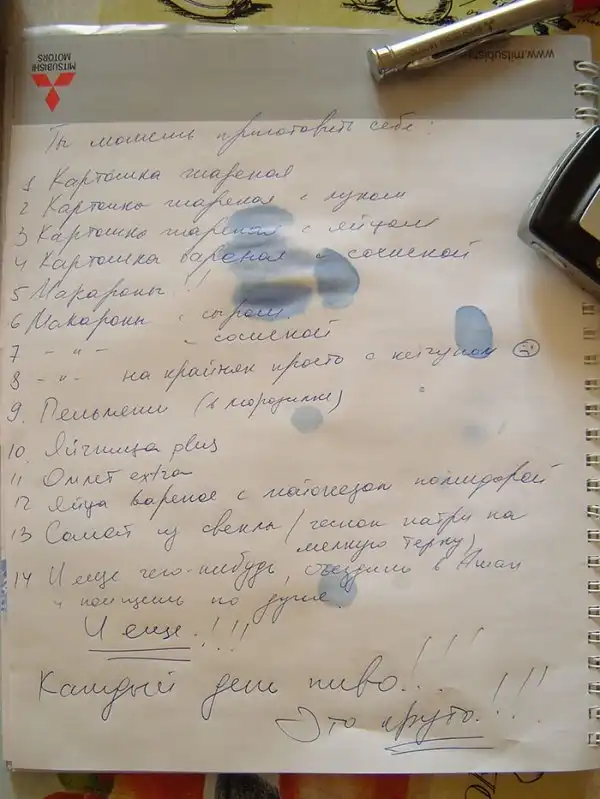 MITSUBISHI
MOTORS
www.mitsubis
Ты можешь приготовить себе:
1 Картошка жареная
2 Картошка жареная с луком
3 Картошка жареная с яйцом
4 Картошка вареная с сосиской
5 Макароны!!
6 Макароны с сыром
7 - " - с сосиской
8 - " - на крайняк просто с кетчупом ☹
9. Пельмени (в морозилке)
10. Яйчница plus
11 Омлет extra
12 Яйца вареное с майонезом помидорой
13 Самой из свеклы (чеснок натри на
мелкую терку)
14 И еще чего-нибудь, съездишь в Ашан
и поищешь по душе.
И еще!!!!
Каждый день пиво!... !!!
Это круто.!!!